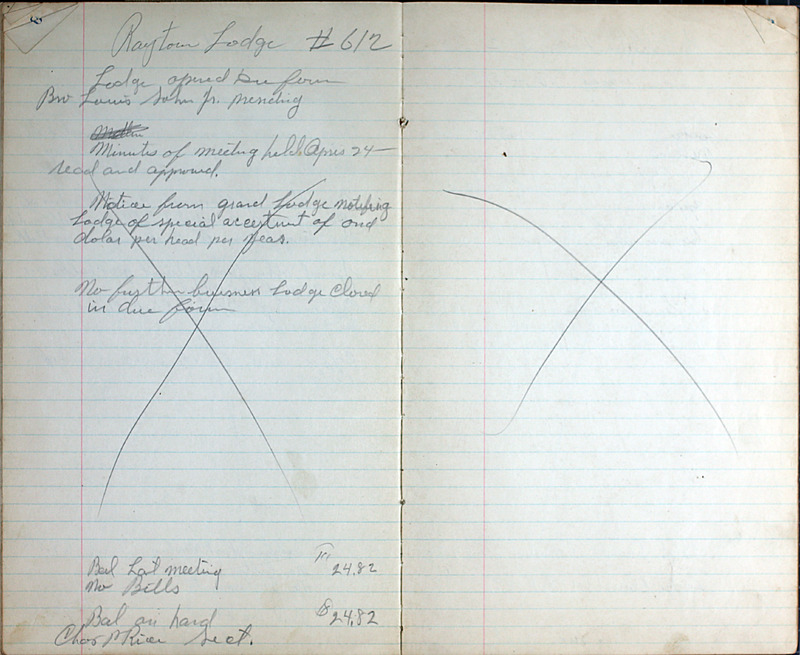 Raytown Lodge # 612
Lodge opened in due form
Bro Louis John Jr. presiding
Minutes of meeting held Apr 24
read and approved.
Notice from grand Lodge notifing
Lodge of special accestment of one
dolar per head per year.
No further buisness Lodge Closed
in due form
Bal Last meeting 24.82
No Bills
Bal on hand $24.82
Chas Rice Sect.